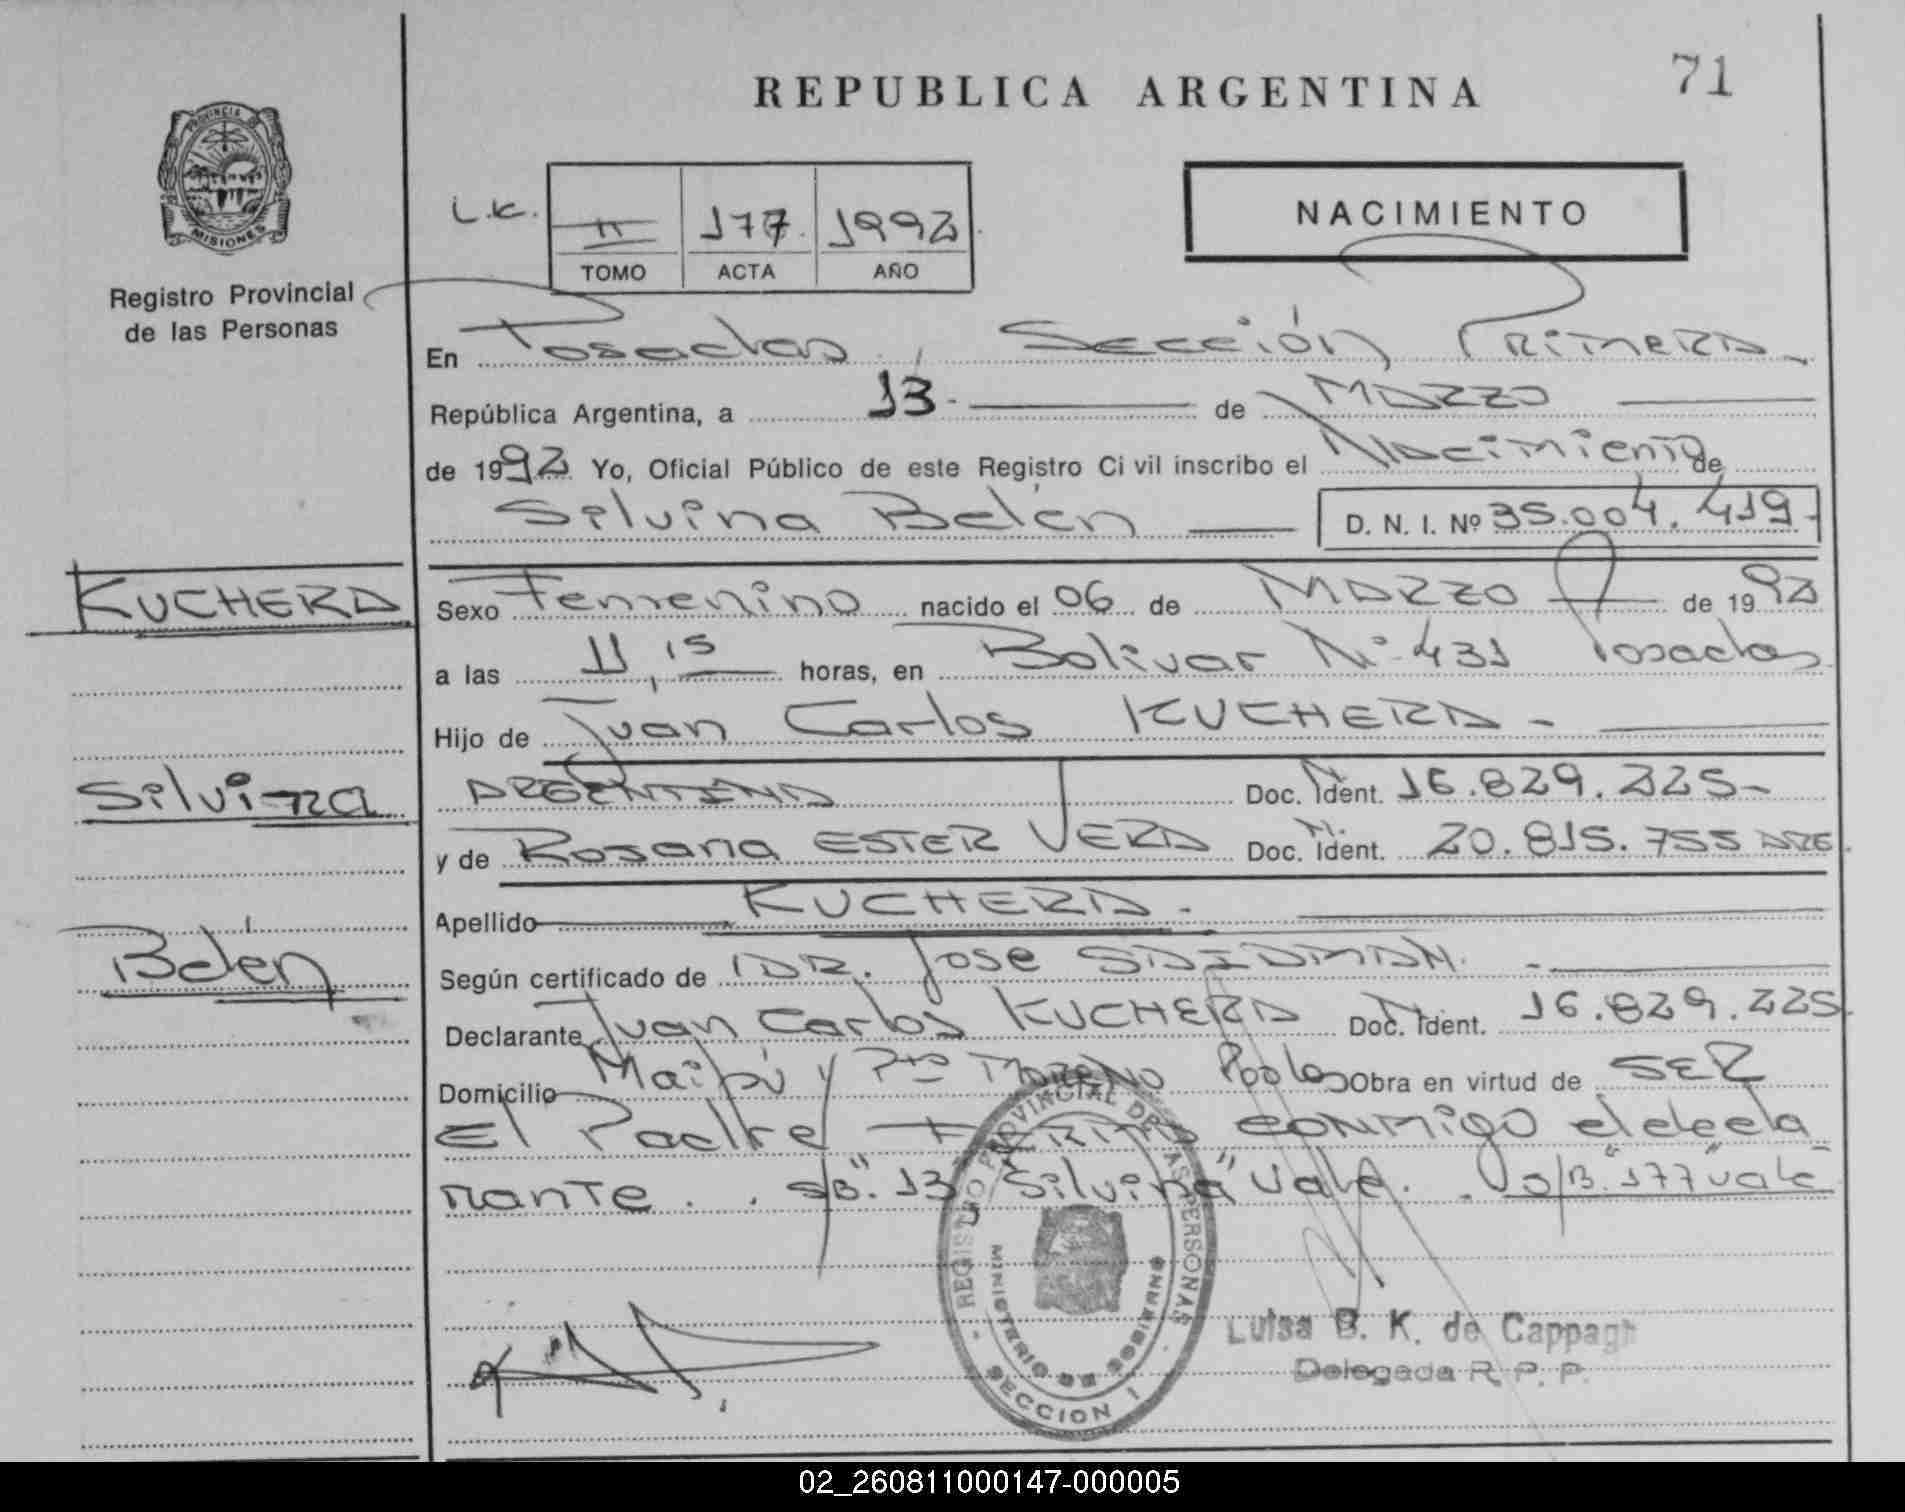 REPUBLICA ARGENTINA
71
PROVINCIA DE
MISIONES
Registro Provincial
de las Personas
L.K.
II 177. 1992
TOMO ACTA AÑO
NACIMIENTO
En Posadas, Sección Primera
República Argentina, a 13- de Marzo
de 1992 Yo, Oficial Público de este Registro Civil inscribo el Nacimiento de
Silvina Belén D. N. I. Nº 35.004.419-
KUCHERA
Sexo Femenino nacido el 06 de Marzo de 1992
a las 11,15 horas, en Bolivar Nº 431 Posadas
Hijo de Juan Carlos KUCHERA-
Silvina
ARGENTINA Doc. Ident. 16.829.225-
y de Rosana ESTER VERA Doc. Ident. 20.815.755 ARG.
Apellido KUCHERA.-
Belén
Según certificado de DR. Jose SAIDMAN.-
Declarante Juan Carlos KUCHERA Doc. Ident. 16.829.225-
Domicilio Maipú y Pto MORENO Pdas Obra en virtud de SER
El Padre FIRMA conmigo el decla-
rante. . S/B. "13" "Silvina" Vale. . S/B. "177" vale
REGISTRO PROVINCIAL DE LAS PERSONAS
MINISTERIO DE GOBIERNO
SECCION I
Luisa B. K. de Cappagh
Delegada R. P. P.
02_260811000147-000005